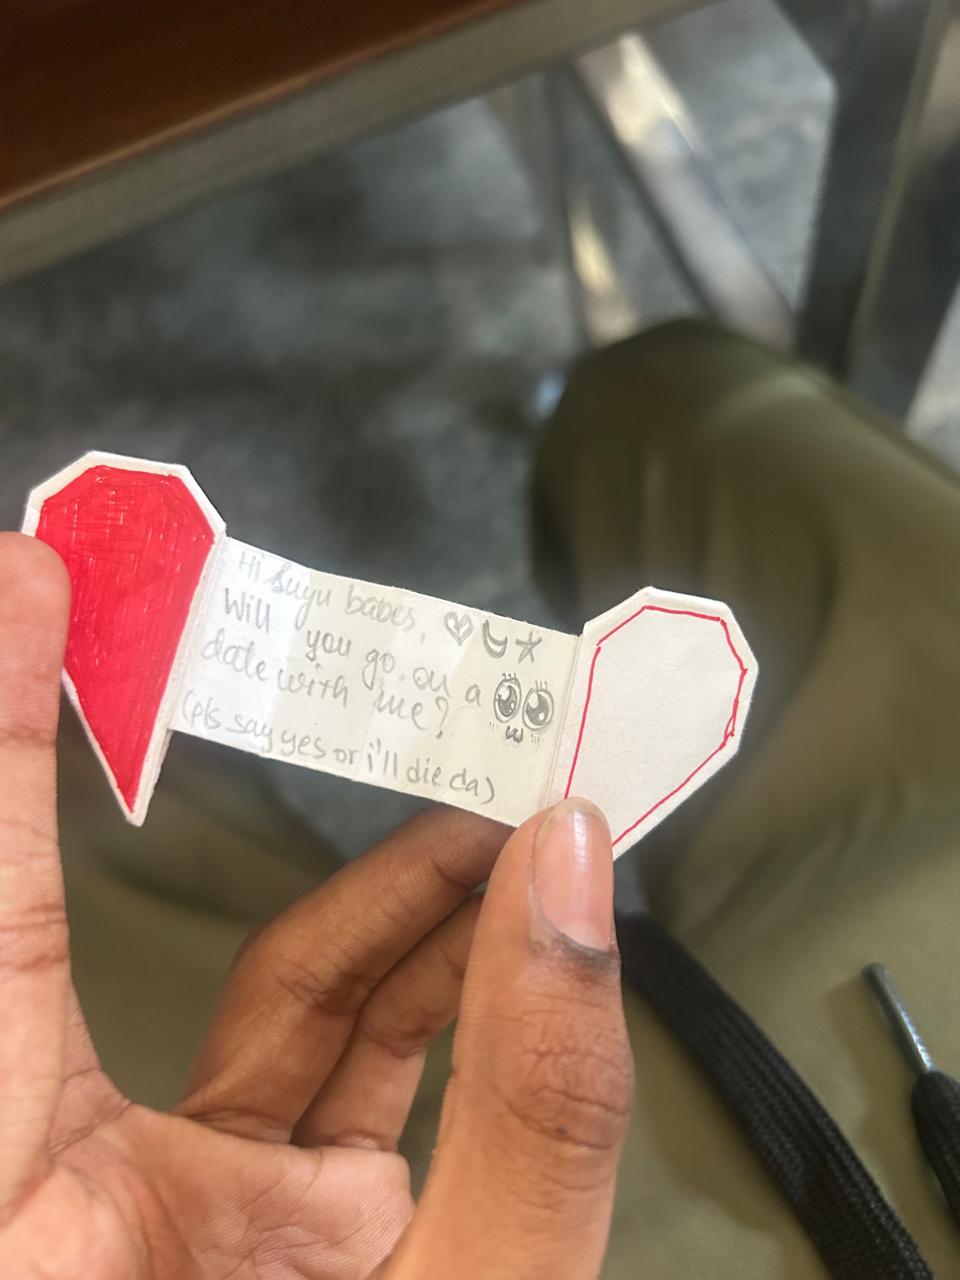 Hi Suyu babes, ♡☾☆
Will you go on a
date with me?
(pls say yes or i'll die da)